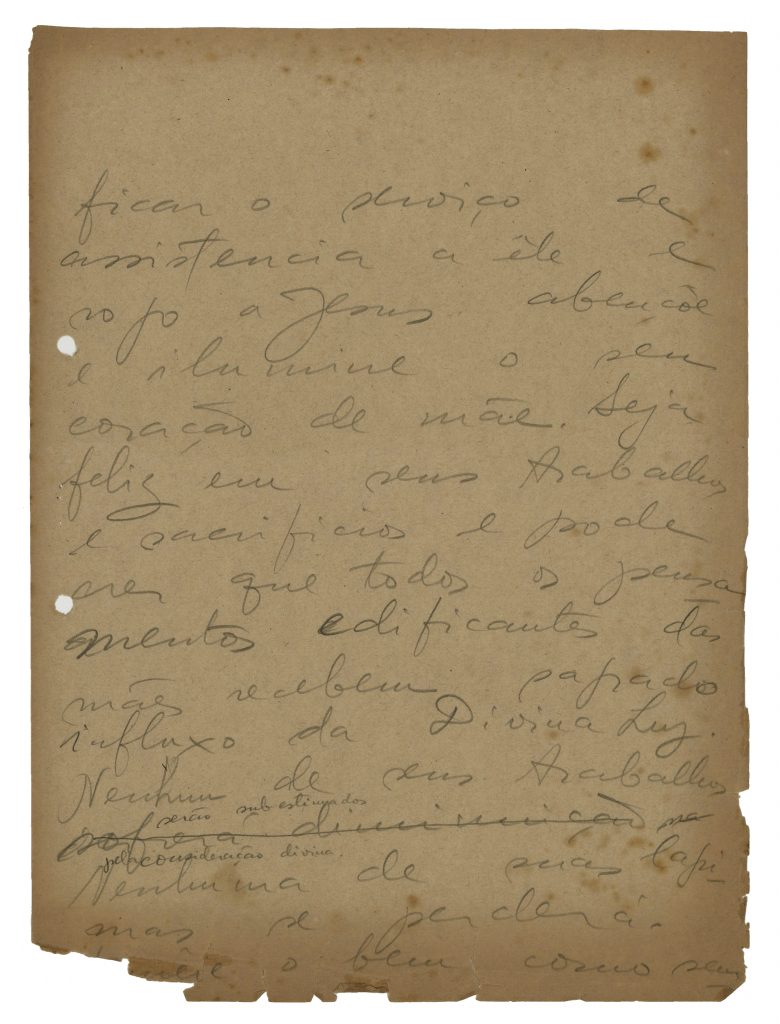 ficar o serviço de
assistencia a êle e
rogo a Jesus abençôe
e ilumine o seu
coração de mãe. Seja
feliz em seus trabalhos
e sacrificios e pode
crer que todos os pensa
mentos edificantes das
mães recebem sagrado
influxo da Divina Luz.
Nenhum de seus trabalhos
serão subestimados
sofrerá diminuição na
pela consideração divina.
Nenhuma de suas lagri-
mas se perderá.
o bem como seus